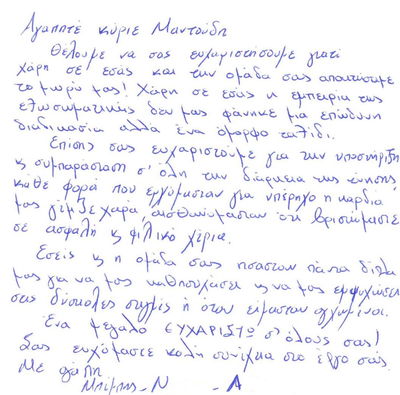 Αγαπητέ κύριε Μαντούδη
Θέλουμε να σας ευχαριστήσουμε γιατί
χάρη σε εσάς και την ομάδα σας αποκτήσαμε
το μωρό μας! Χάρη σε εσάς η εμπειρία της
εξωσωματικής δεν μας φάνηκε μια επώδυνη
διαδικασία αλλα ένα όμορφο ταξίδι.
Επίσης σας ευχαριστούμε για την υποστήριξη
ς συμπαράσταση σ' όλη την διάρκεια της κύησης
κάθε φορά που ερχόμασταν για υπέρηχο η καρδιά
μας γέμιζε χαρά, αισθανόμασταν ότι βρισκόμαστε
σε ασφαλή ς φιλικά χέρια.
Εσείς ς η ομάδα σας ήσασταν πάντα δίπλα
μας για να μας καθησυχάσει ς να μας εμψυχώσει
σας δύσκολες στιγμές ή όταν είμασταν αγχωμένοι.
Ένα μεγάλο ΕΥΧΑΡΙΣΤΩ σ' όλους σας!
Σας ευχόμαστε καλή συνέχεια στο έργο σας.
Με αγάπη
- Ν - Λ